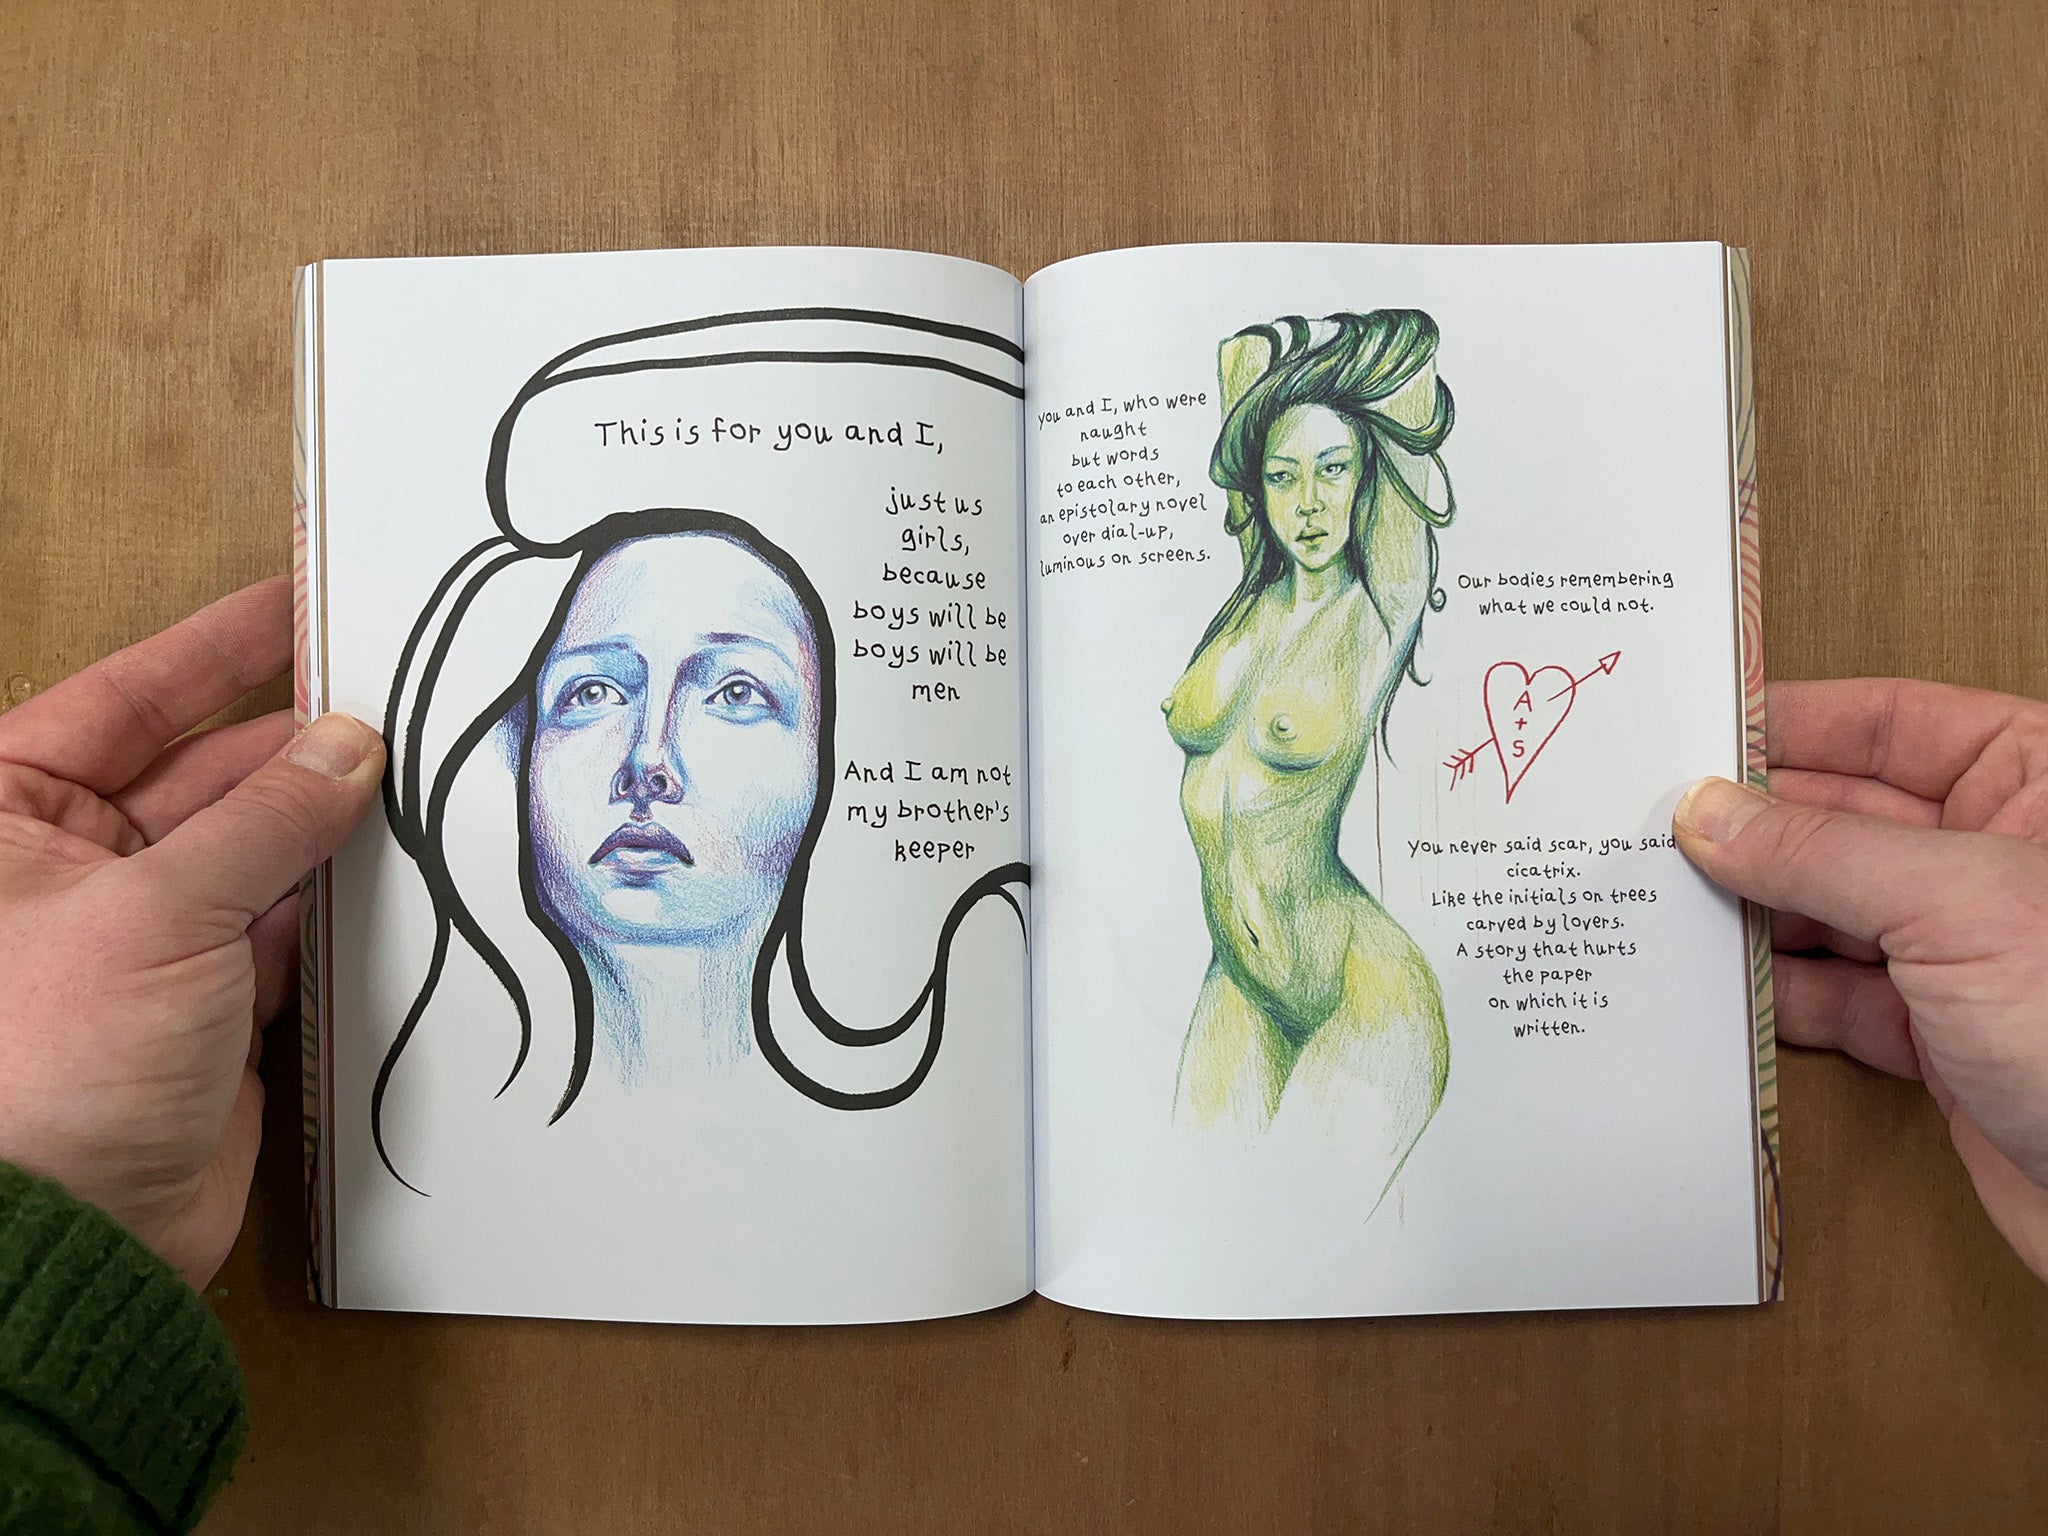 This is for you and I,
just us
girls,
because
boys will be
boys will be
men
And I am not
my brother's
keeper
you and I, who were
naught
but words
to each other,
an epistolary novel
over dial-up,
luminous on screens.
Our bodies remembering
what we could not.
A
+
S
You never said scar, you said
cicatrix.
Like the initials on trees
carved by lovers.
A story that hurts
the paper
on which it is
written.